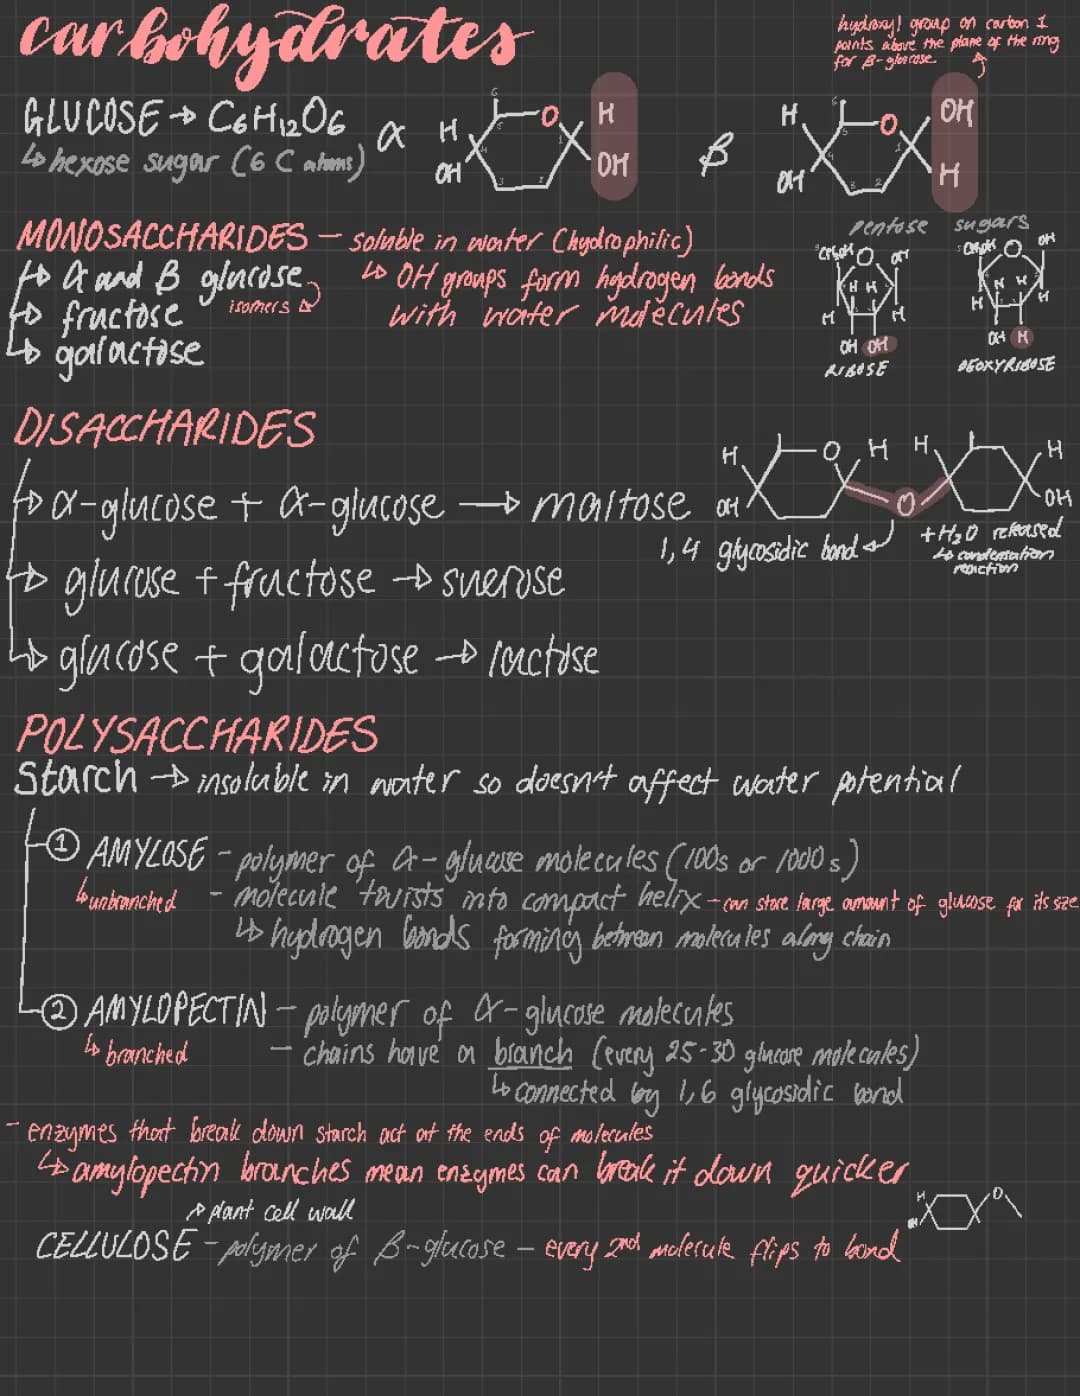 carbohydrates
hydroxyl group on carbon 1
points above the plane of the ring
for β-glucose
GLUCOSE → C6H12O6
↳ hexose sugar (6 C atoms)
α
6
O
H
H
OH
OH
5
4
3
2
1
β
6
O
H
OH
OH
H
5
4
3
2
1
MONOSACCHARIDES – soluble in water (hydrophilic)
↳ OH groups form hydrogen bonds
with water molecules
→ α and β glucose
isomers
→ fructose
→ galactose
pentose sugars
CH2OH O OH
H H
H H
OH OH
RIBOSE
CH2OH O OH
H H
H H
OH H
DEOXYRIBOSE
DISACCHARIDES
→ α-glucose + α-glucose → maltose
H O H H H
OH O OH
1,4 glycosidic bond
+ H2O released
↳ condensation
reaction
→ glucose + fructose → sucrose
→ glucose + galactose → lactose
POLYSACCHARIDES
Starch → insoluble in water so doesn't affect water potential
① AMYLOSE – polymer of α-glucose molecules (100s or 1000s)
↳ unbranched
– molecule twists into compact helix – can store large amount of glucose for its size
↳ hydrogen bonds forming between molecules along chain
② AMYLOPECTIN – polymer of α-glucose molecules
↳ branched
– chains have a branch (every 25-30 glucose molecules)
↳ connected by 1,6 glycosidic bond
– enzymes that break down starch act at the ends of molecules
↳ amylopectin branches mean enzymes can break it down quicker
→ plant cell wall
CELLULOSE – polymer of β-glucose – every 2nd molecule flips to bond
H
O